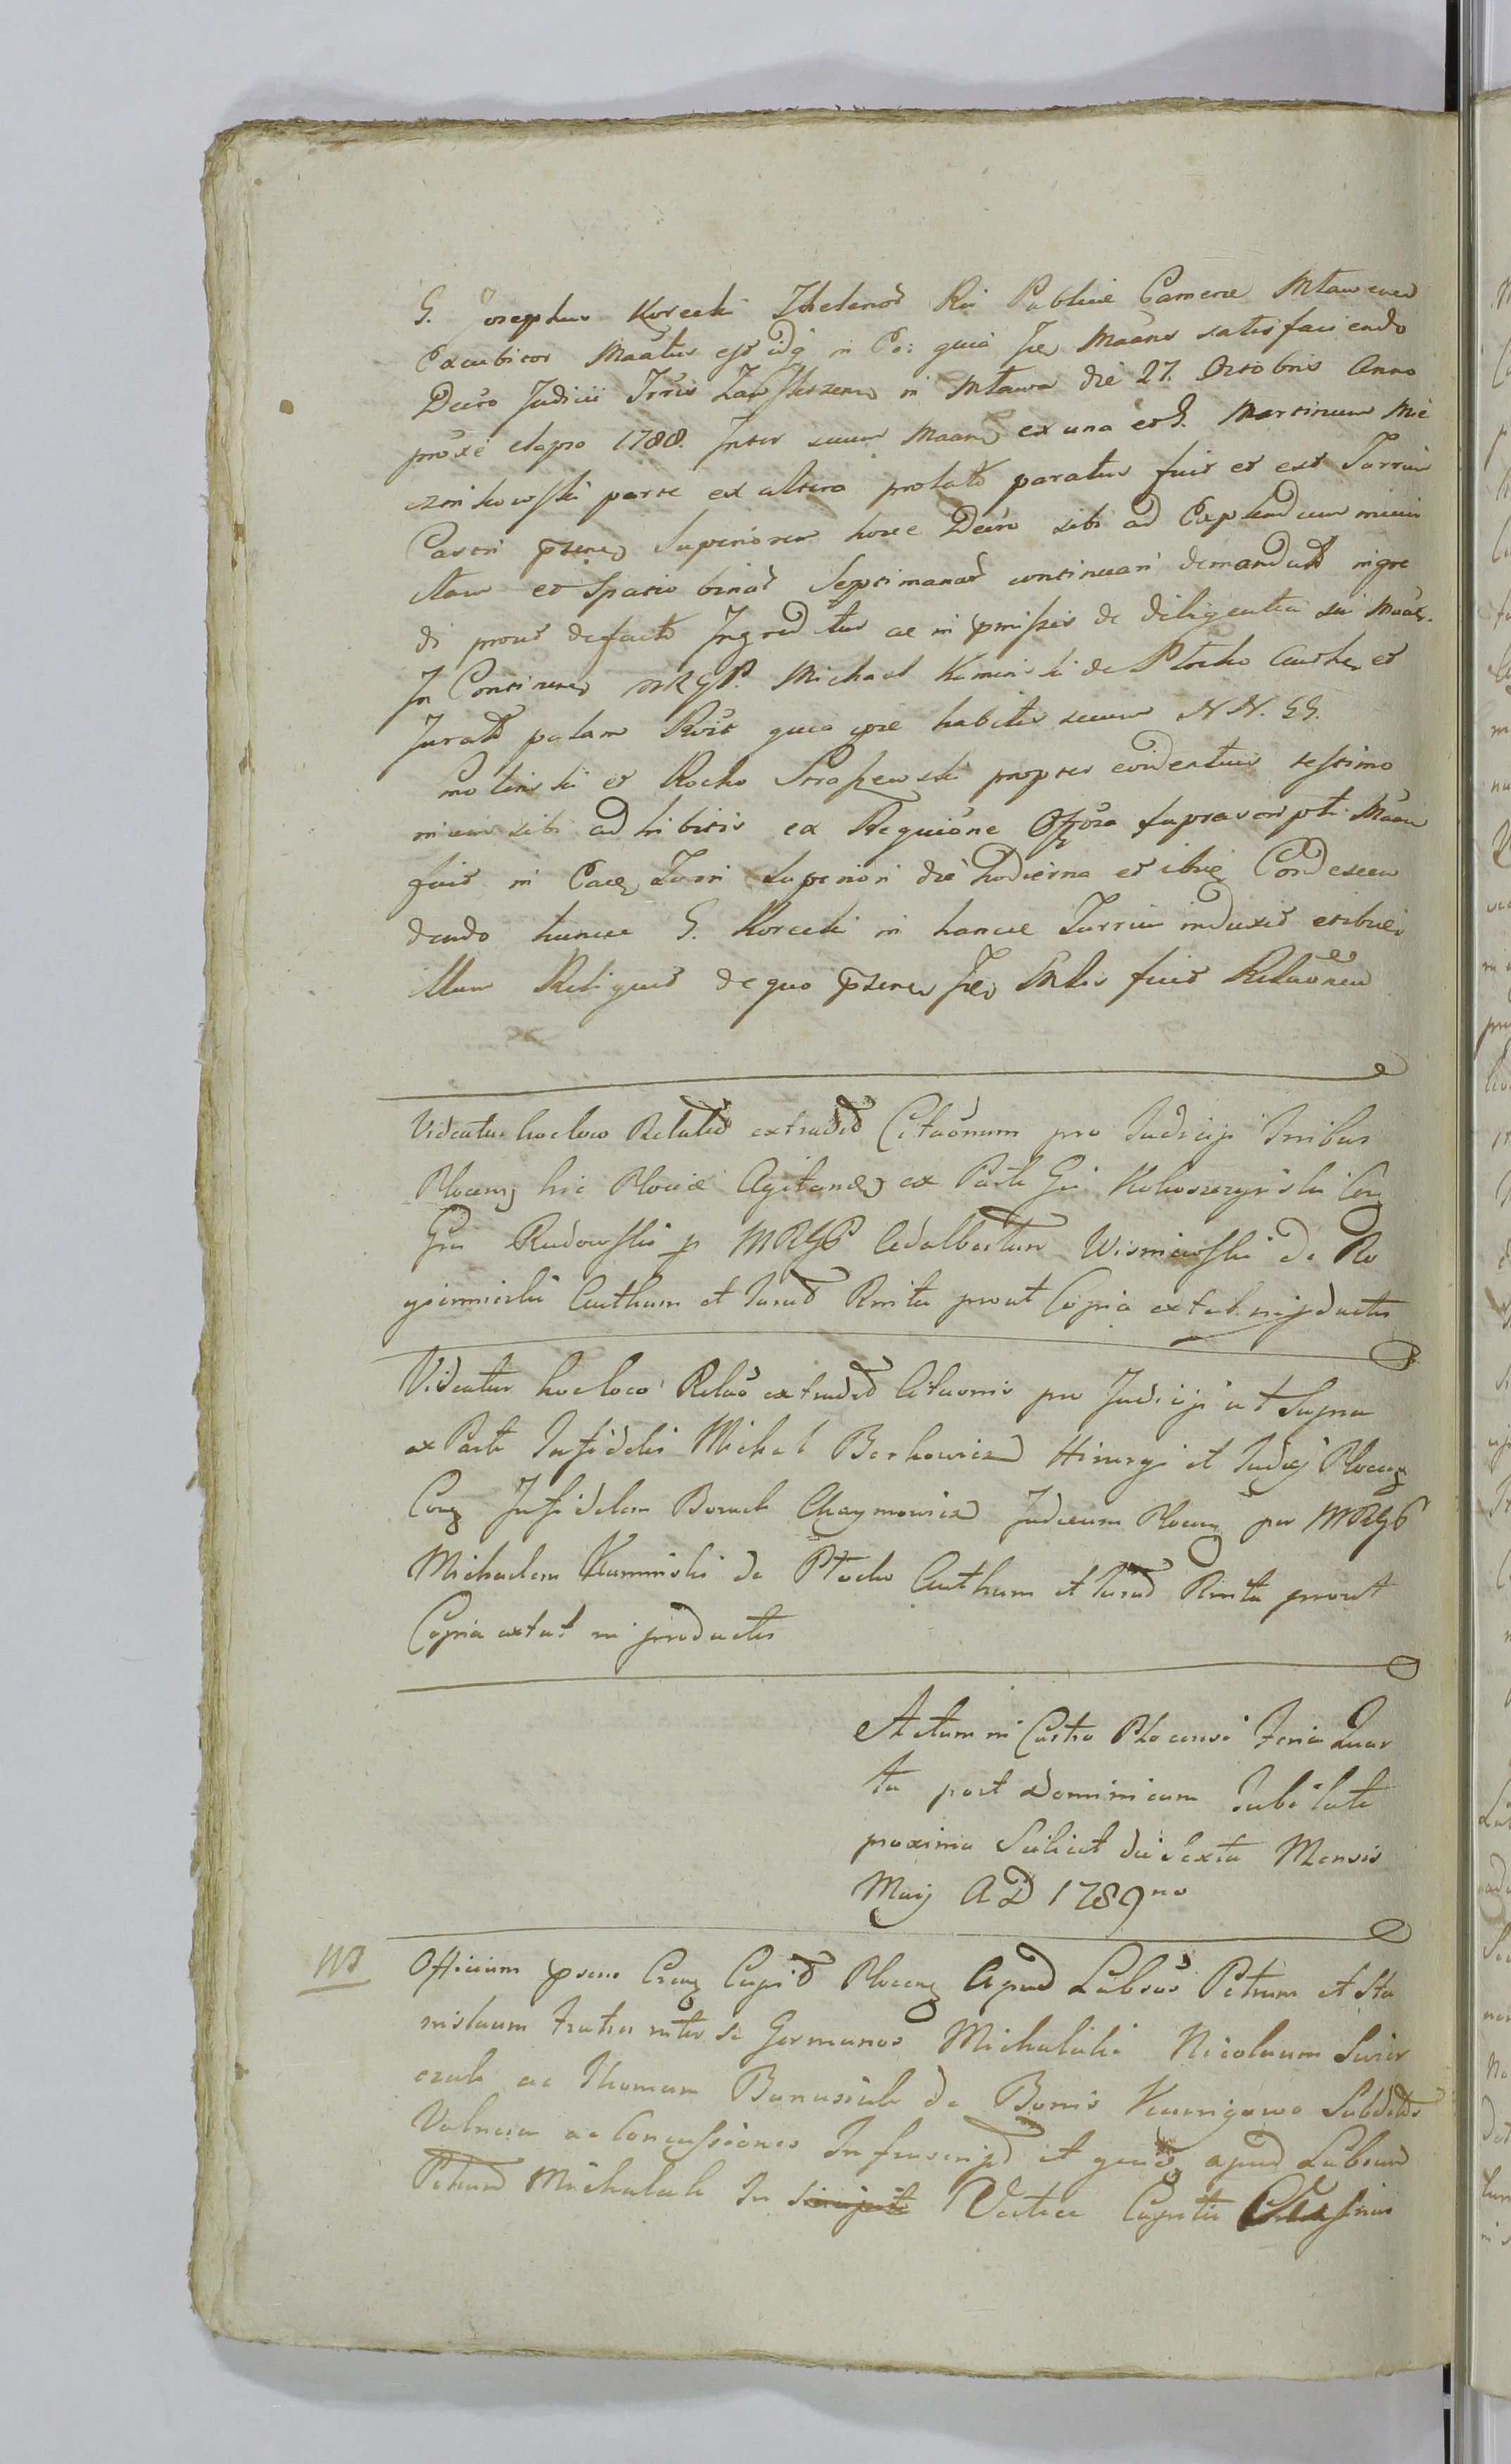 G. Josephus Korecki Thelonei Rei Publicae Camerae Mlawen
Excubitor Maatus est idq in Eo: quia Ipse Maans satisfaciendo
Decreto Judicii Trris Zawskrzen in Mlawa die 27. Octobris Anno
proxe elapso 1788. Inter suum Maan ex una et G. Martinum Mie
cznikowski parte ex altera prolato paratus fuit et est Turrim
Castri psenes Superiorem hocce Decro sibi ad Explendum
illam et Spatio binar Septimanar continuari demandat ingre
di prout defacto Ingreditur ac in pmissis de diligentia sui Maat.
In Continenti MRGP. Michael Kaminski de Plocko Authen et
Jurat palam Rcoit quia ipse habitis secum NN. GG.
Molinski et Rocho Straszewski propter evidentius testimo
nium sibi adhibitis ex Requione Offiosa suprascripti Maan
fuit in Turri Superiori die hodierna et ibiq Condescen
dendo hunce G. Korecki in hance Turrim induxit et ibiq
illum Reliquit de quo psenes Ipse Mtis fecit Relaonem
Videatur hocloco Relatio extradit Citaonum pro Judicijs Trribus
Plocens hic Plociae Agitand ex Parte Gsi Kokoszczynski Con
Gsm Rudowski p MRGP Adalbertum Wisniewski de Ro
gieniczki Authum et Jurat Rnita prout Copia extat in pductis
Videatur hocloco Relao extradit Citaonis pro Judicijs ut Supra
ex Parte Infidelis Michel Berkowicz Hirurgi et Judaej Plocens
Con Infidelem Boruch Chaymowicz Judaeum Plocens per MRGP
Michaelem Kaminski de Plocko Authum et Jurat Rnita prout
Copia extat in productis
Actum in Castro Plocensi Feria Quar
ta post Dominicam Jubilate
proxima Scilicet die Sexta Mensis
Maij AD 1789no
NB Officium psens Crense Capit Plocens Apud Labsos Petrum et Sta
nislaum Fratres inter se Germanos Michalaki Nicolaum Swier
czak ac Thomam Banasiak de Bonis Kunigowo Subditos
Vulnera ac Concussiones Infrascript et quid apud Labsum
Petrum Michalak In Vertice Capitis